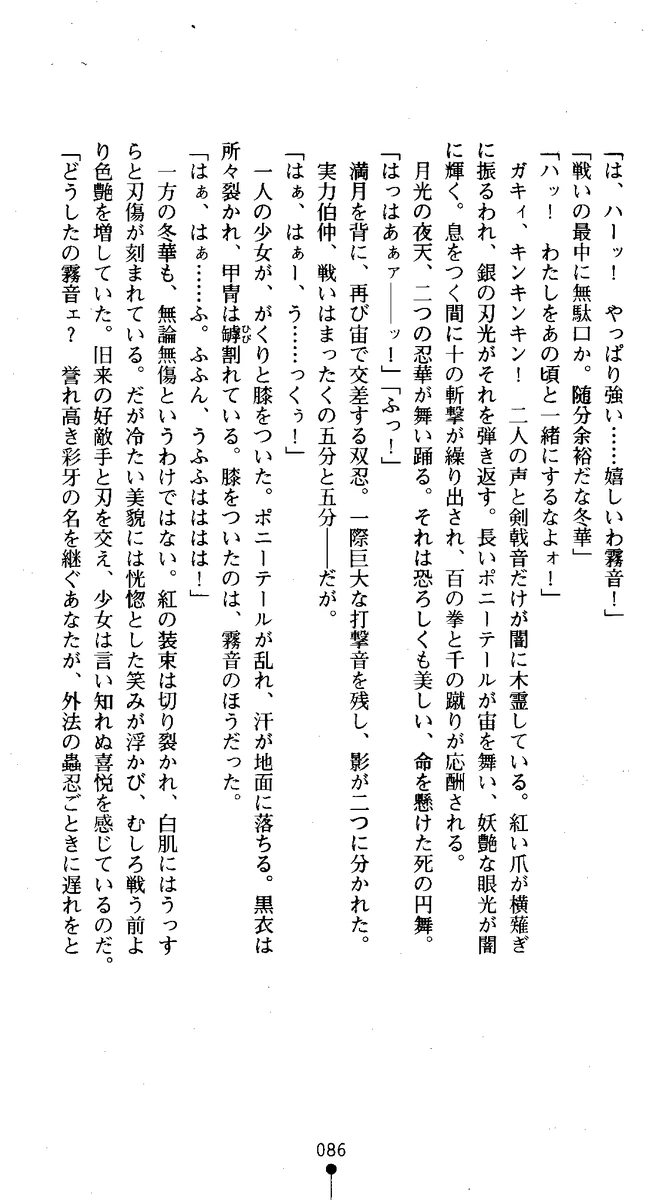 「は、ハーッ！　やっぱり強い……嬉しいわ霧音！」
「戦いの最中に無駄口か。随分余裕だな冬華」
「ハッ！　わたしをあの頃と一緒にするなよォ！」
　ガキィ、キンキンキン！　二人の声と剣戟音だけが闇に木霊している。紅い爪が横薙ぎ
に振るわれ、銀の刃光がそれを弾き返す。長いポニーテールが宙を舞い、妖艶な眼光が闇
に輝く。息をつく間に十の斬撃が繰り出され、百の拳と千の蹴りが応酬される。
　月光の夜天、二つの忍華が舞い踊る。それは恐ろしくも美しい、命を懸けた死の円舞。
「はっはあぁァ――ッ！」「ふっ！」
　満月を背に、再び宙で交差する双忍。一際巨大な打撃音を残し、影が二つに分かれた。
　実力伯仲、戦いはまったくの五分と五分――だが。
「はぁ、はぁー、う……っくぅ！」
　一人の少女が、がくりと膝をついた。ポニーテールが乱れ、汗が地面に落ちる。黒衣は
所々裂かれ、甲冑は罅割れている。膝をついたのは、霧音のほうだった。
ひび
「はぁ、はぁ……ふ。ふふん、うふふはははは！」
　一方の冬華も、無論無傷というわけではない。紅の装束は切り裂かれ、白肌にはうっす
らと刃傷が刻まれている。だが冷たい美貌には恍惚とした笑みが浮かび、むしろ戦う前よ
り色艶を増していた。旧来の好敵手と刃を交え、少女は言い知れぬ喜悦を感じているのだ。
「どうしたの霧音ェ？　誉れ高き彩牙の名を継ぐあなたが、外法の蟲忍ごときに遅れをと
086